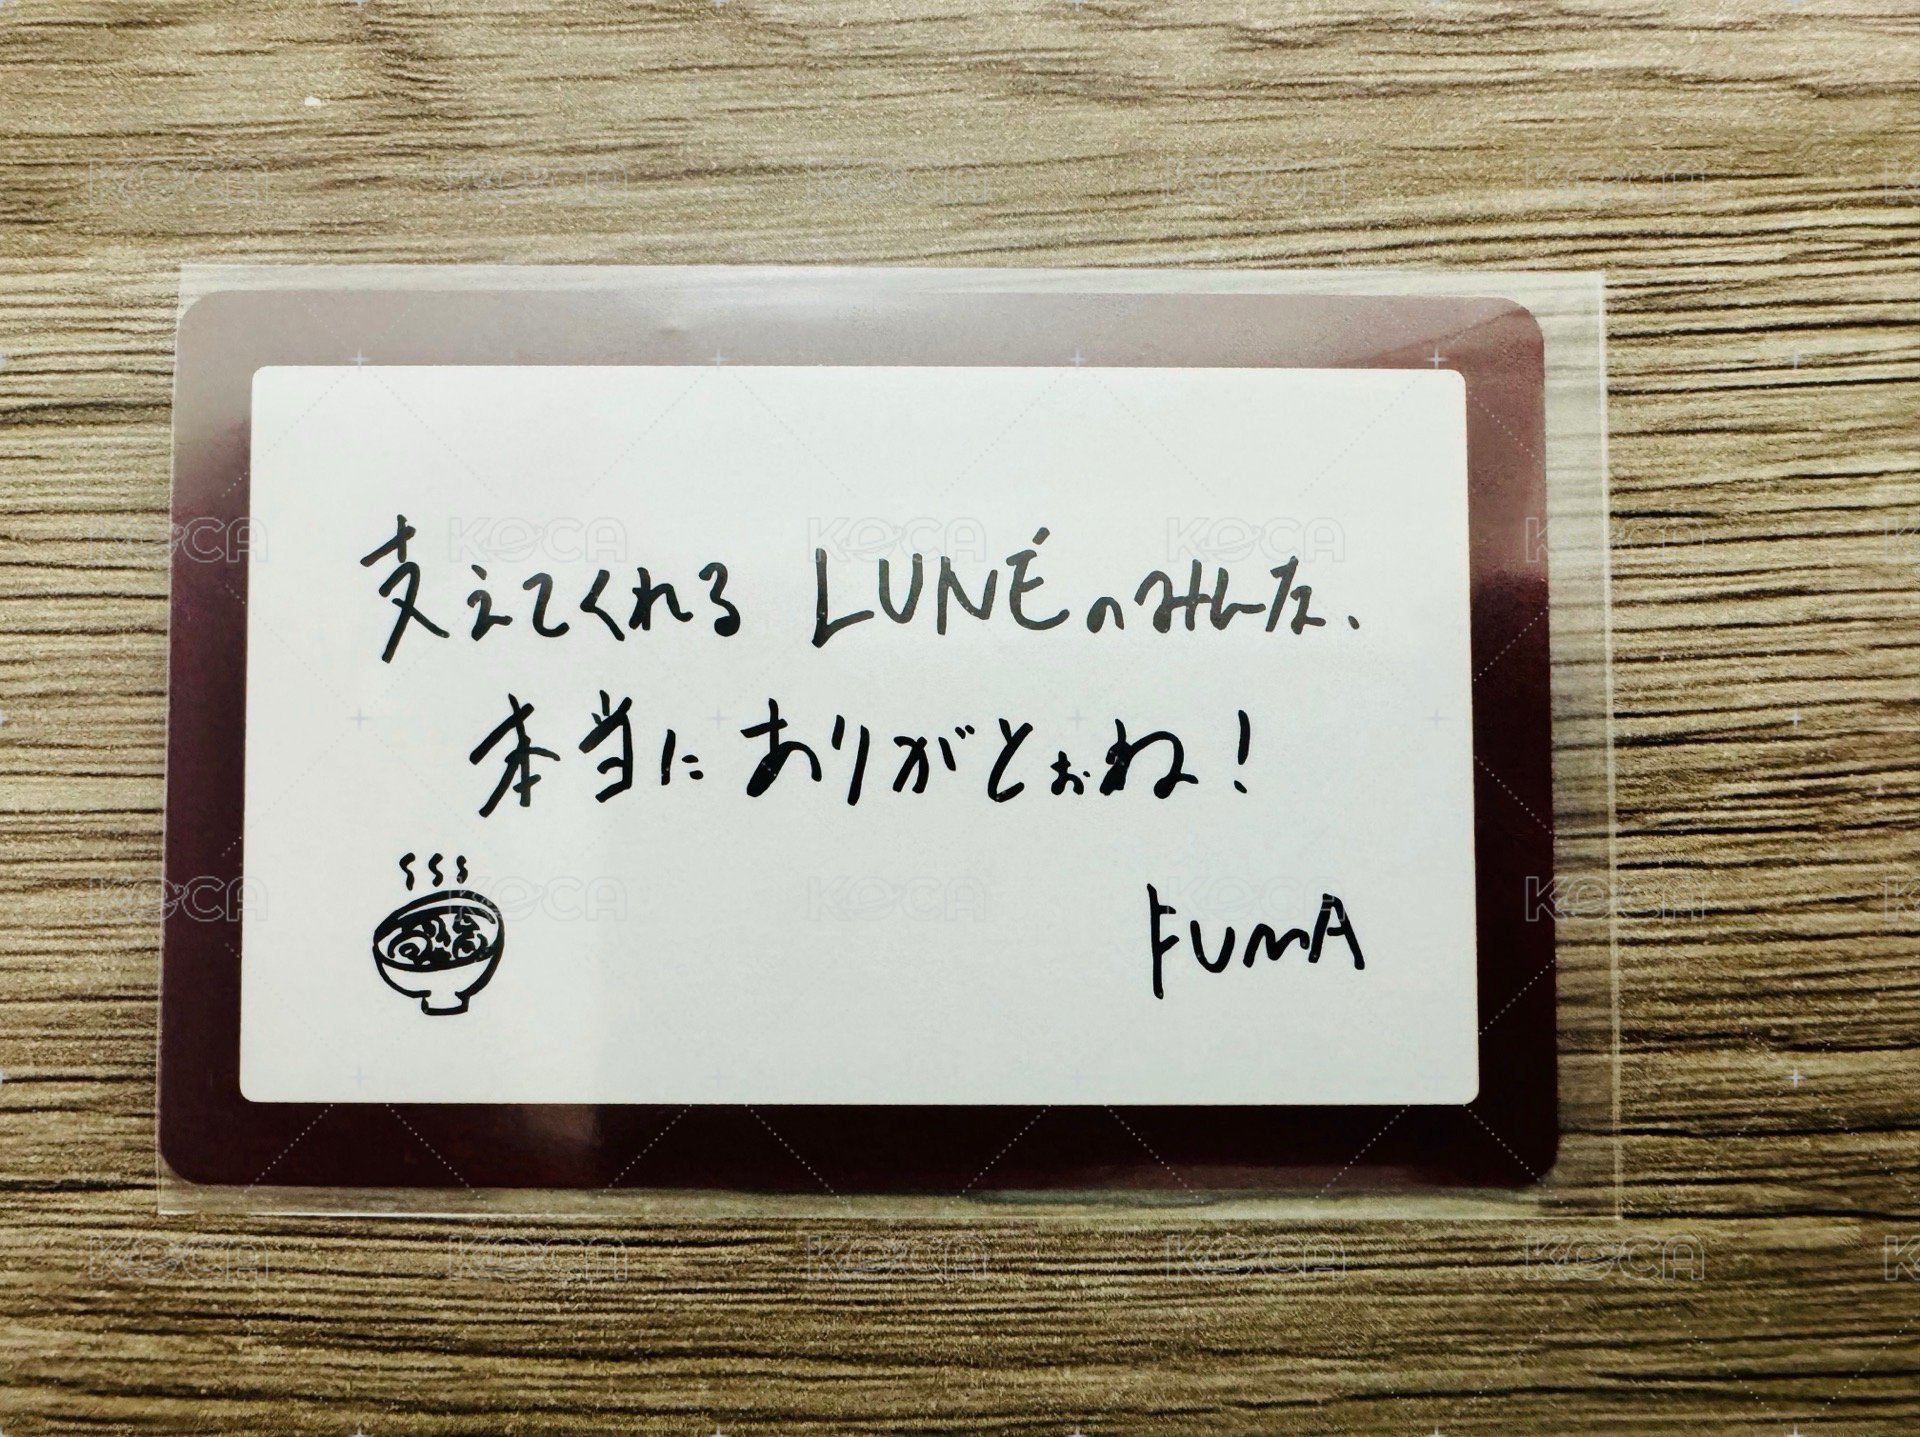 支えてくれる LUNÉのみんな、
本当にありがとぉね！
FUMA
KOCA